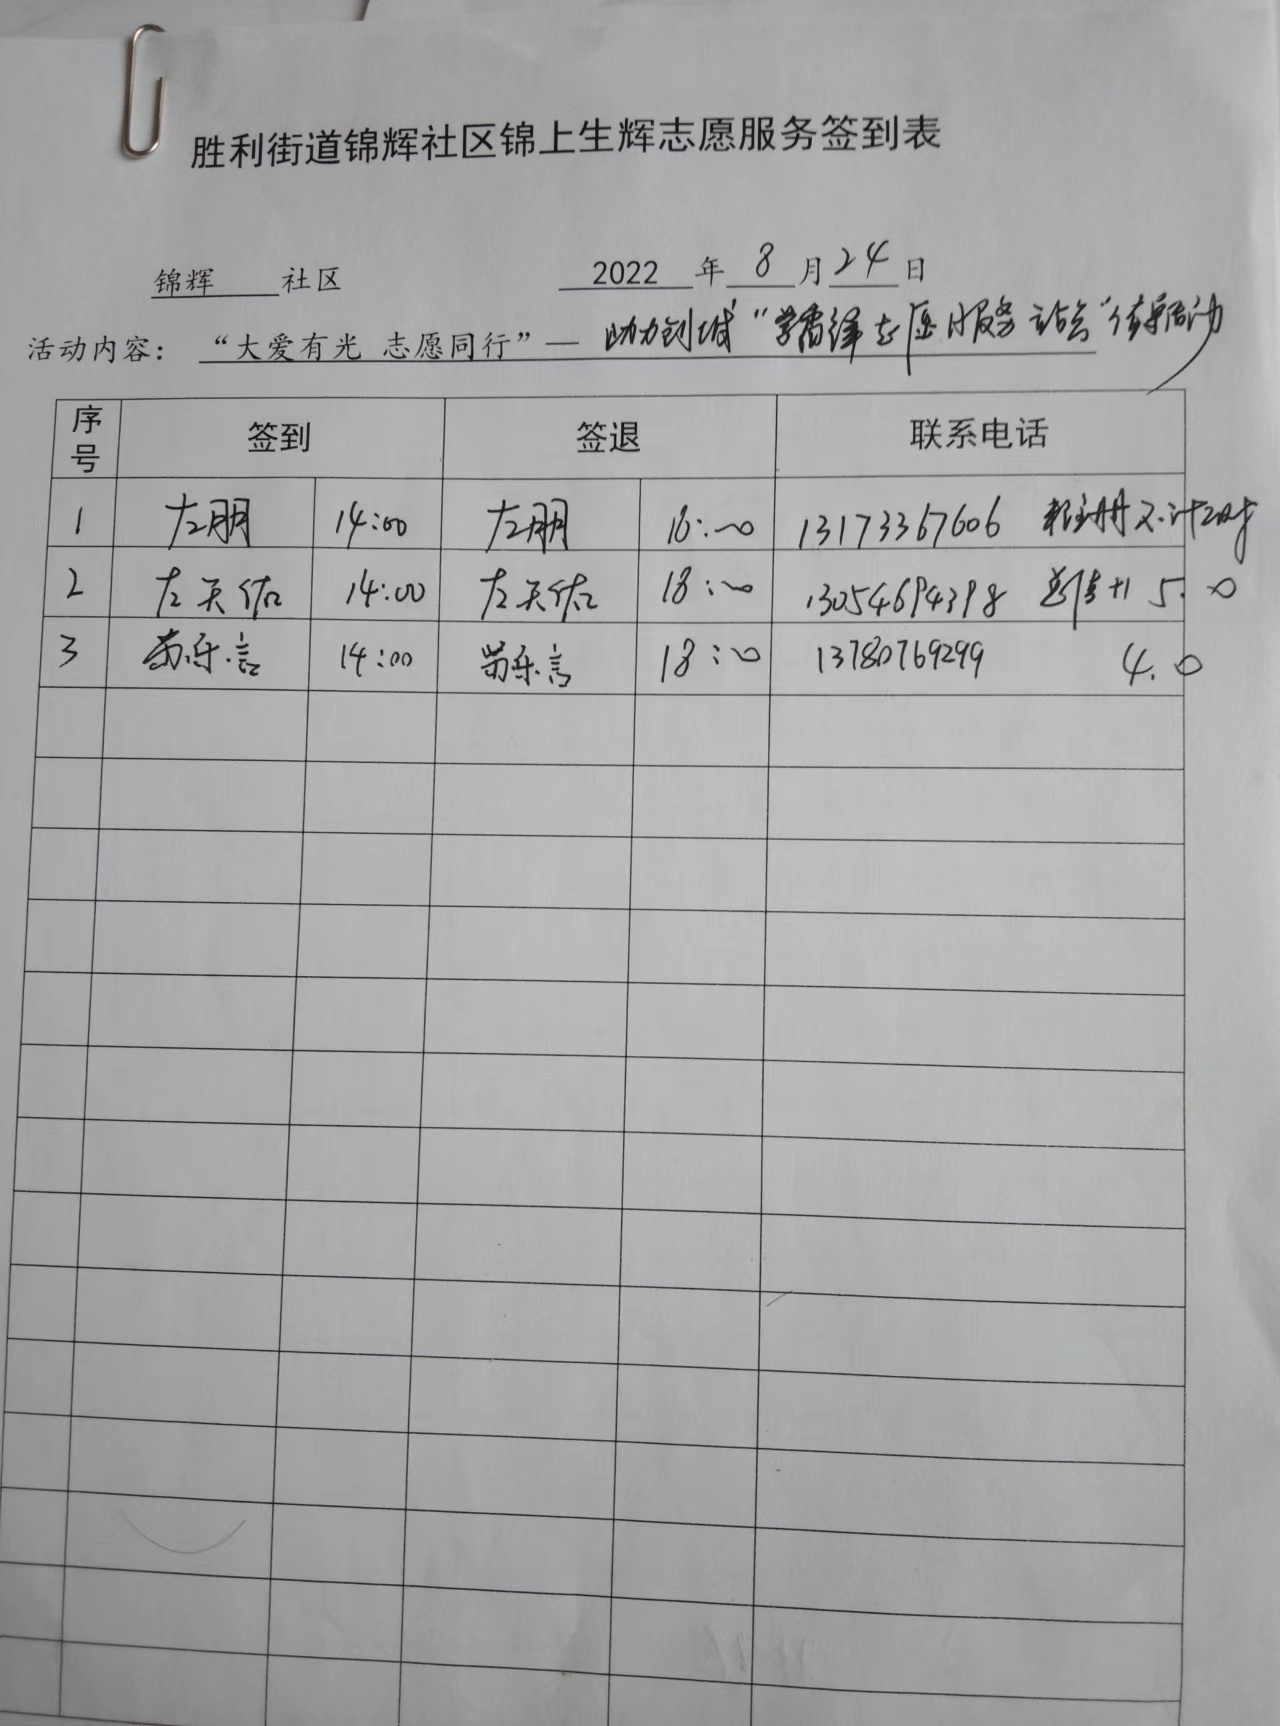 胜利街道锦辉社区锦上生辉志愿服务签到表
锦辉 社区 2022 年 8 月 24 日
活动内容： “大爱有光 志愿同行”— 助力创城“学雷锋志愿服务站台”值导活动
序号 签到 签退 联系电话
1 左朋 14:00 左朋 18:00 13173367606 未注册不计时
2 左天佑 14:00 左天佑 18:00 13054694398 5.0
3 乐言 14:00 乐言 18:00 13780769299 4.0